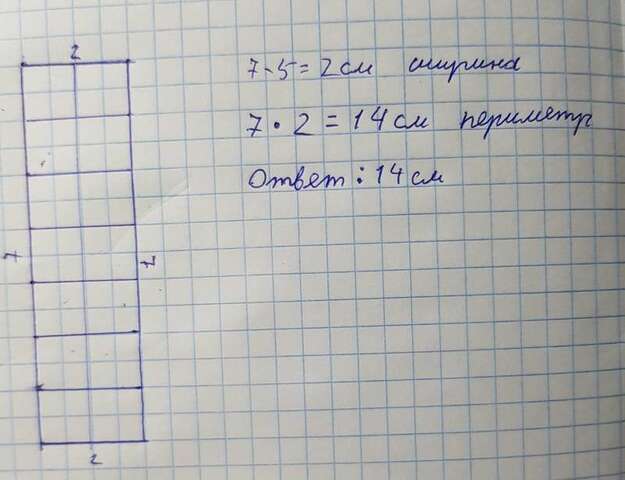 2
7 - 5 = 2 см ширина
7 • 2 = 14 см периметр
Ответ: 14 см
7
7
2